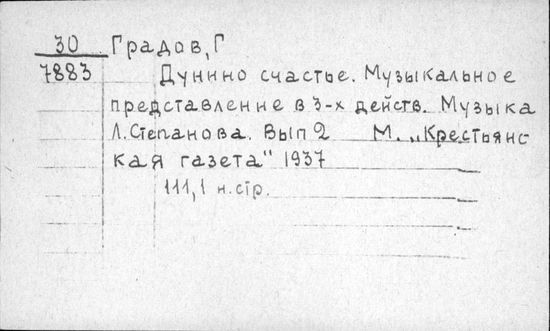 30 Градов, Г
7883 Дунино счастье. Музыкальное
представление в 3-х действ. Музыка
Л. Степанова. Вып 2 М. „Крестьянс
кая газета" 1937
111, 1 н. стр.